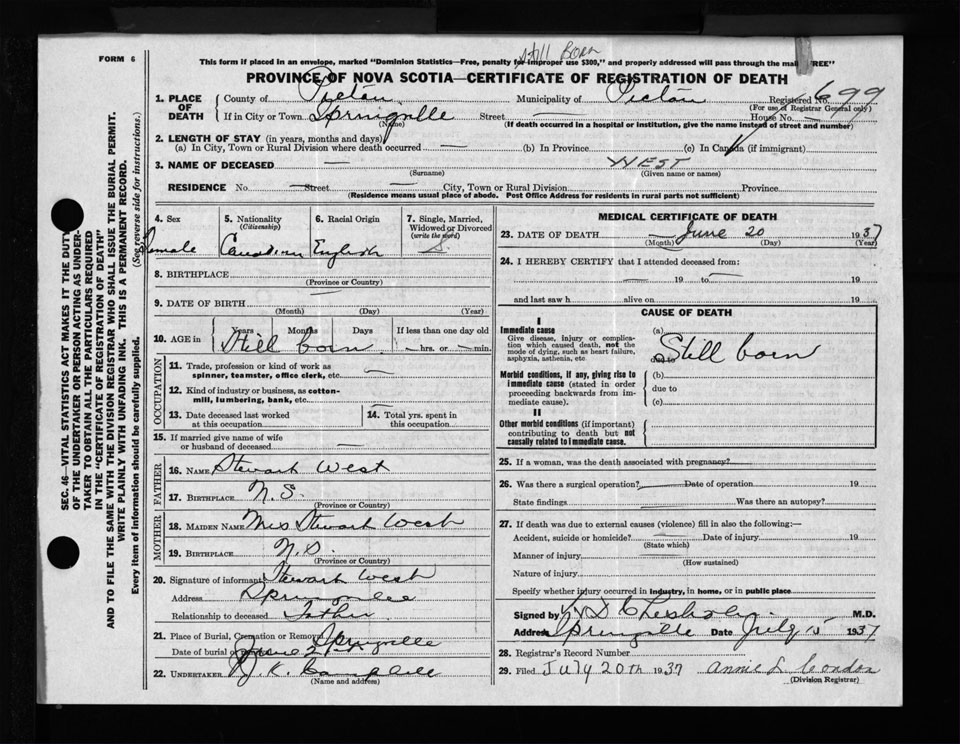 Still Born
FORM 6
This form if placed in an envelope, marked "Dominion Statistics—Free, penalty for improper use $300," and properly addressed will pass through the mail "FREE"
PROVINCE OF NOVA SCOTIA—CERTIFICATE OF REGISTRATION OF DEATH
1. PLACE OF DEATH
County of Pictou Municipality of Pictou Registered No. 699
(For use of Registrar General only)
If in City or Town Springville Street — House No. —
(Name) (If death occurred in a hospital or institution, give the name instead of street and number)
2. LENGTH OF STAY (in years, months and days)
(a) In City, Town or Rural Division where death occurred — (b) In Province (c) In Canada (if immigrant)
3. NAME OF DECEASED — West
(Surname) (Given name or names)
RESIDENCE No. — Street — City, Town or Rural Division Province
(Residence means usual place of abode. Post Office Address for residents in rural parts not sufficient)
4. Sex
Female
5. Nationality
(Citizenship)
Canadian
6. Racial Origin
English
7. Single, Married, Widowed or Divorced
(write the word)
S.
8. BIRTHPLACE —
(Province or Country)
9. DATE OF BIRTH —
(Month) (Day) (Year)
10. AGE in Years Months Days If less than one day old
Still born — hrs. or — min.
OCCUPATION
11. Trade, profession or kind of work as spinner, teamster, office clerk, etc. —
12. Kind of industry or business, as cotton-mill, lumbering, bank, etc.
13. Date deceased last worked at this occupation
14. Total yrs. spent in this occupation.
15. If married give name of wife or husband of deceased —
FATHER
16. NAME Stewart West
17. BIRTHPLACE N.S.
(Province or Country)
MOTHER
18. MAIDEN NAME Mrs Stewart West
19. BIRTHPLACE N.S.
(Province or Country)
20. Signature of informant Stewart West
Address Springville
Relationship to deceased Father
21. Place of Burial, Cremation or Removal Springville
Date of burial or June
22. UNDERTAKER J. K. Campbell
(Name and address)
MEDICAL CERTIFICATE OF DEATH
23. DATE OF DEATH June 20 1937
(Month) (Day) (Year)
24. I HEREBY CERTIFY that I attended deceased from:
— 19 to — 19
and last saw h alive on 19
CAUSE OF DEATH
I
Immediate cause
Give disease, injury or complication which caused death, not the mode of dying, such as heart failure, asphyxia, asthenia, etc
(a)
due to
Still born
Morbid conditions, if any, giving rise to immediate cause (stated in order proceeding backwards from immediate cause).
(b)
due to
(c)
II
Other morbid conditions (if important) contributing to death but not causally related to immediate cause.
25. If a woman, was the death associated with pregnancy?
26. Was there a surgical operation? Date of operation 19
State findings Was there an autopsy?
27. If death was due to external causes (violence) fill in also the following:—
Accident, suicide or homicide? Date of injury 19
(State which)
Manner of injury
(How sustained)
Nature of injury
Specify whether injury occurred in industry, in home, or in public place
Signed by Chisholm M.D.
Address Springville Date July 15 1937
28. Registrar's Record Number
29. Filed July 20th 1937 Annie L. Condon
(Division Registrar)
SEC. 46—VITAL STATISTICS ACT MAKES IT THE DUTY
OF THE UNDERTAKER OR PERSON ACTING AS UNDER-
TAKER TO OBTAIN ALL THE PARTICULARS REQUIRED
IN THE "CERTIFICATE OF REGISTRATION OF DEATH"
AND TO FILE THE SAME WITH THE DIVISION REGISTRAR WHO SHALL ISSUE THE BURIAL PERMIT.
WRITE PLAINLY WITH UNFADING INK. THIS IS A PERMANENT RECORD.
Every item of information should be carefully supplied. (See reverse side for instructions.)